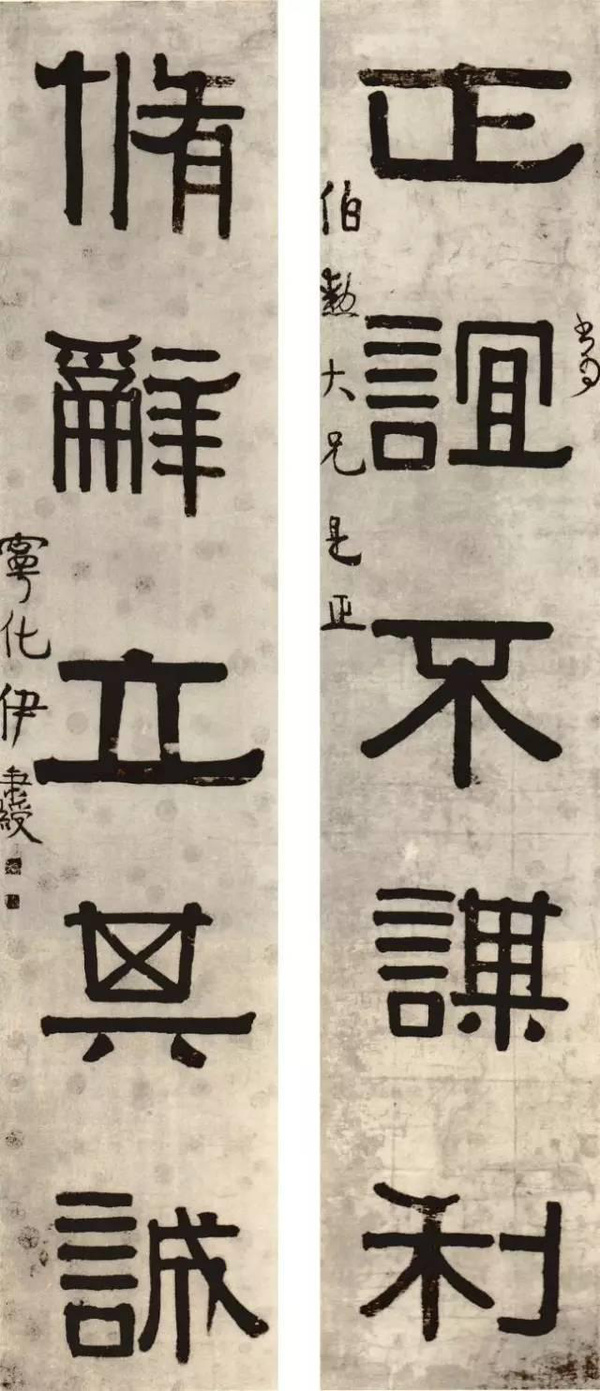 正誼不謀利
伯勲大兄是正
脩辭立其誠
寧化伊秉綬